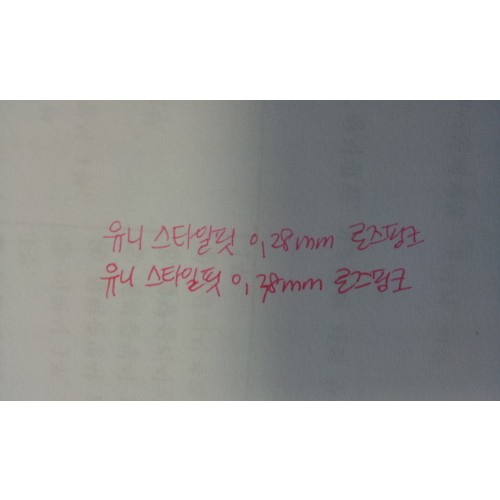 유니 스타일핏 0,28mm 로즈핑크
유니 스타일핏 0,38mm 로즈핑크